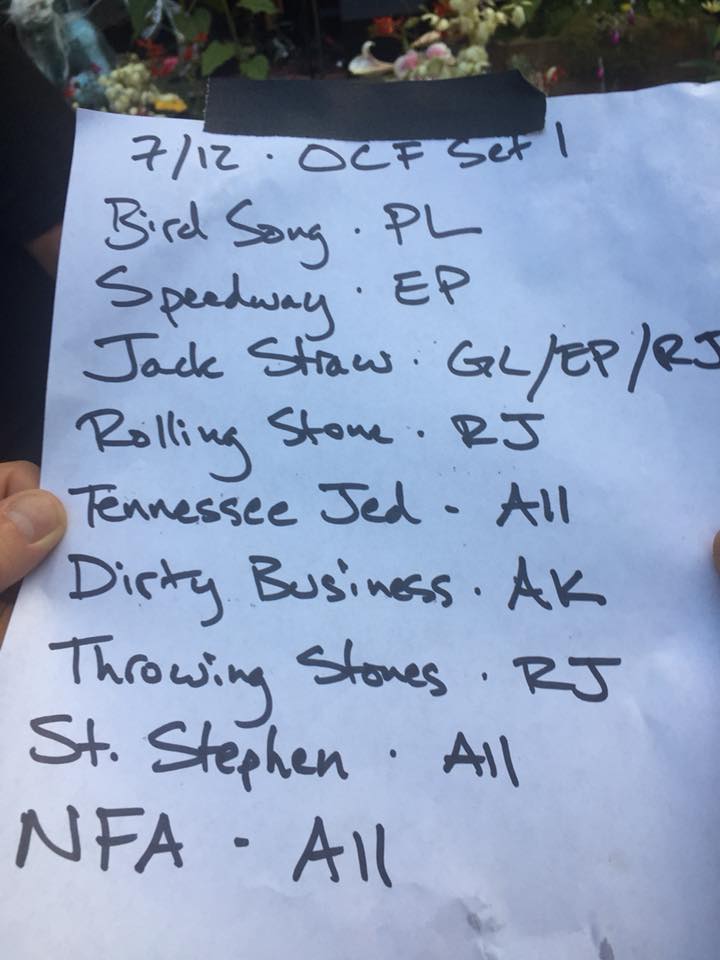 7/12 · OCF Set 1
Bird Song · PL
Speedway · EP
Jack Straw · GL/EP/RJ
Rolling Stone · RJ
Tennessee Jed - All
Dirty Business · AK
Throwing Stones · RJ
St. Stephen · All
NFA - All